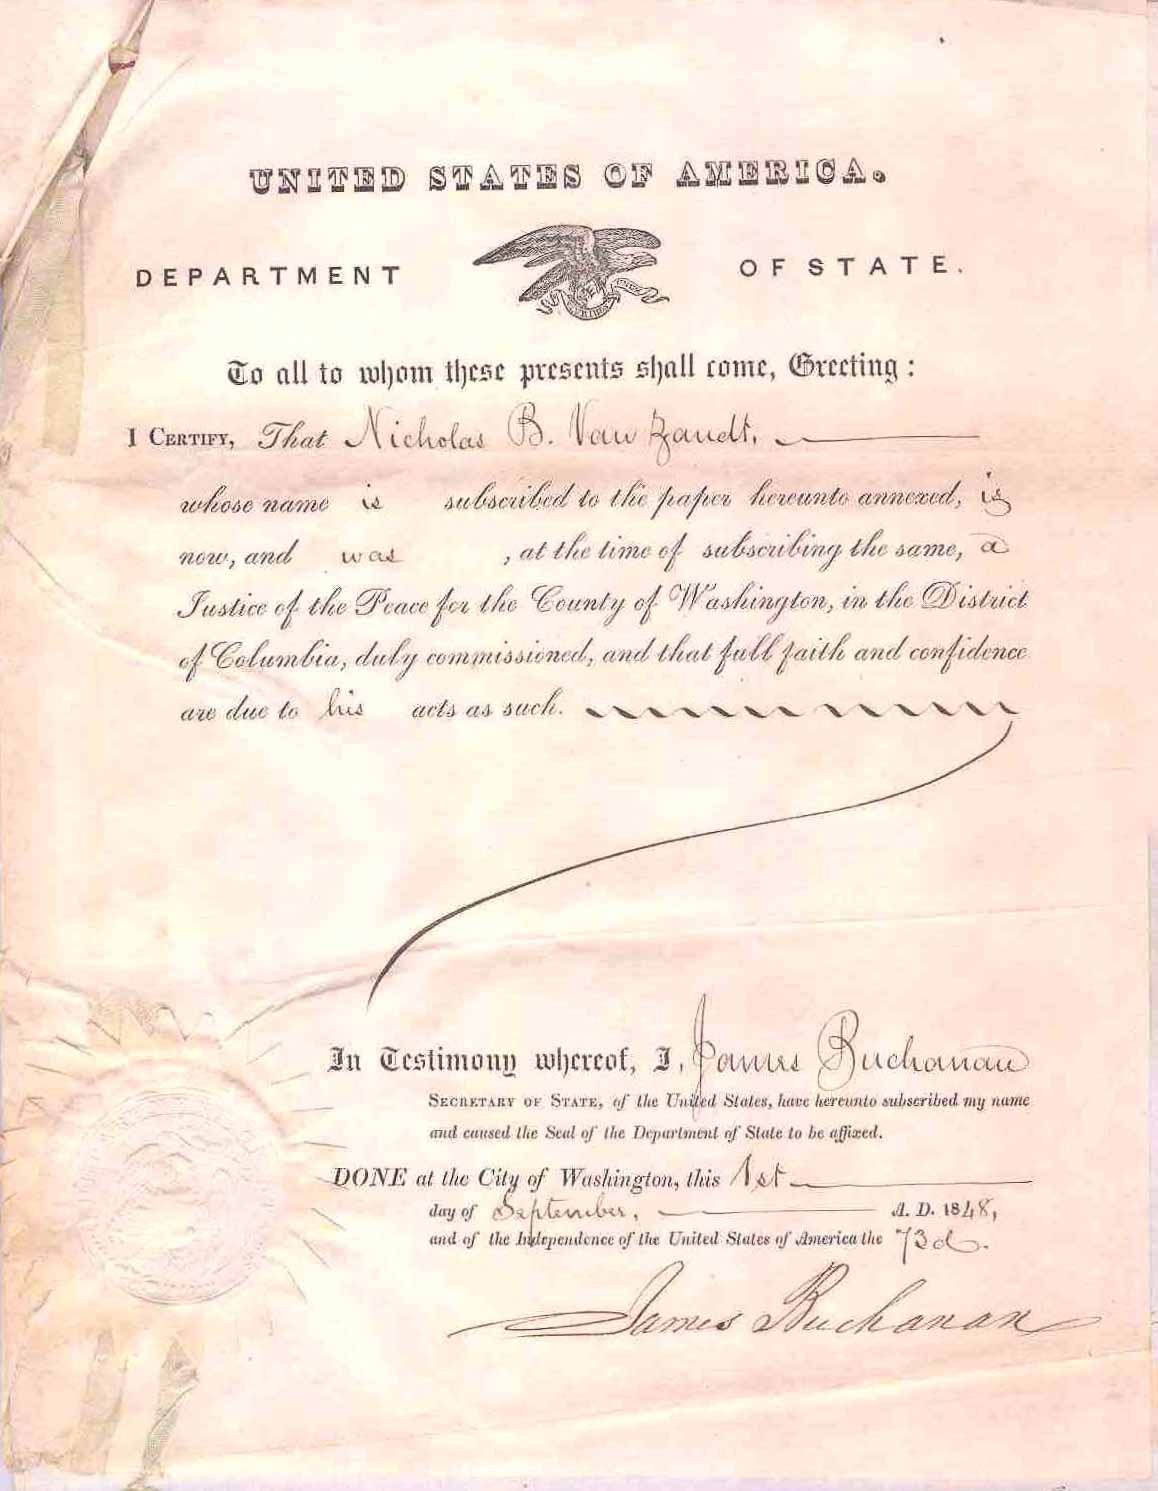 UNITED STATES OF AMERICA.
DEPARTMENT OF STATE.
To all to whom these presents shall come, Greeting:
I CERTIFY, That Nicholas B. Van Zandt,
whose name is subscribed to the paper hereunto annexed, is
now, and was , at the time of subscribing the same, a
Justice of the Peace for the County of Washington, in the District
of Columbia, duly commissioned, and that full faith and confidence
are due to his acts as such.
In Testimony whereof, I, James Buchanan
SECRETARY OF STATE, of the United States, have hereunto subscribed my name
and caused the Seal of the Department of State to be affixed.
DONE at the City of Washington, this 1st
day of September, A. D. 1848,
and of the Independence of the United States of America the 73d.
James Buchanan